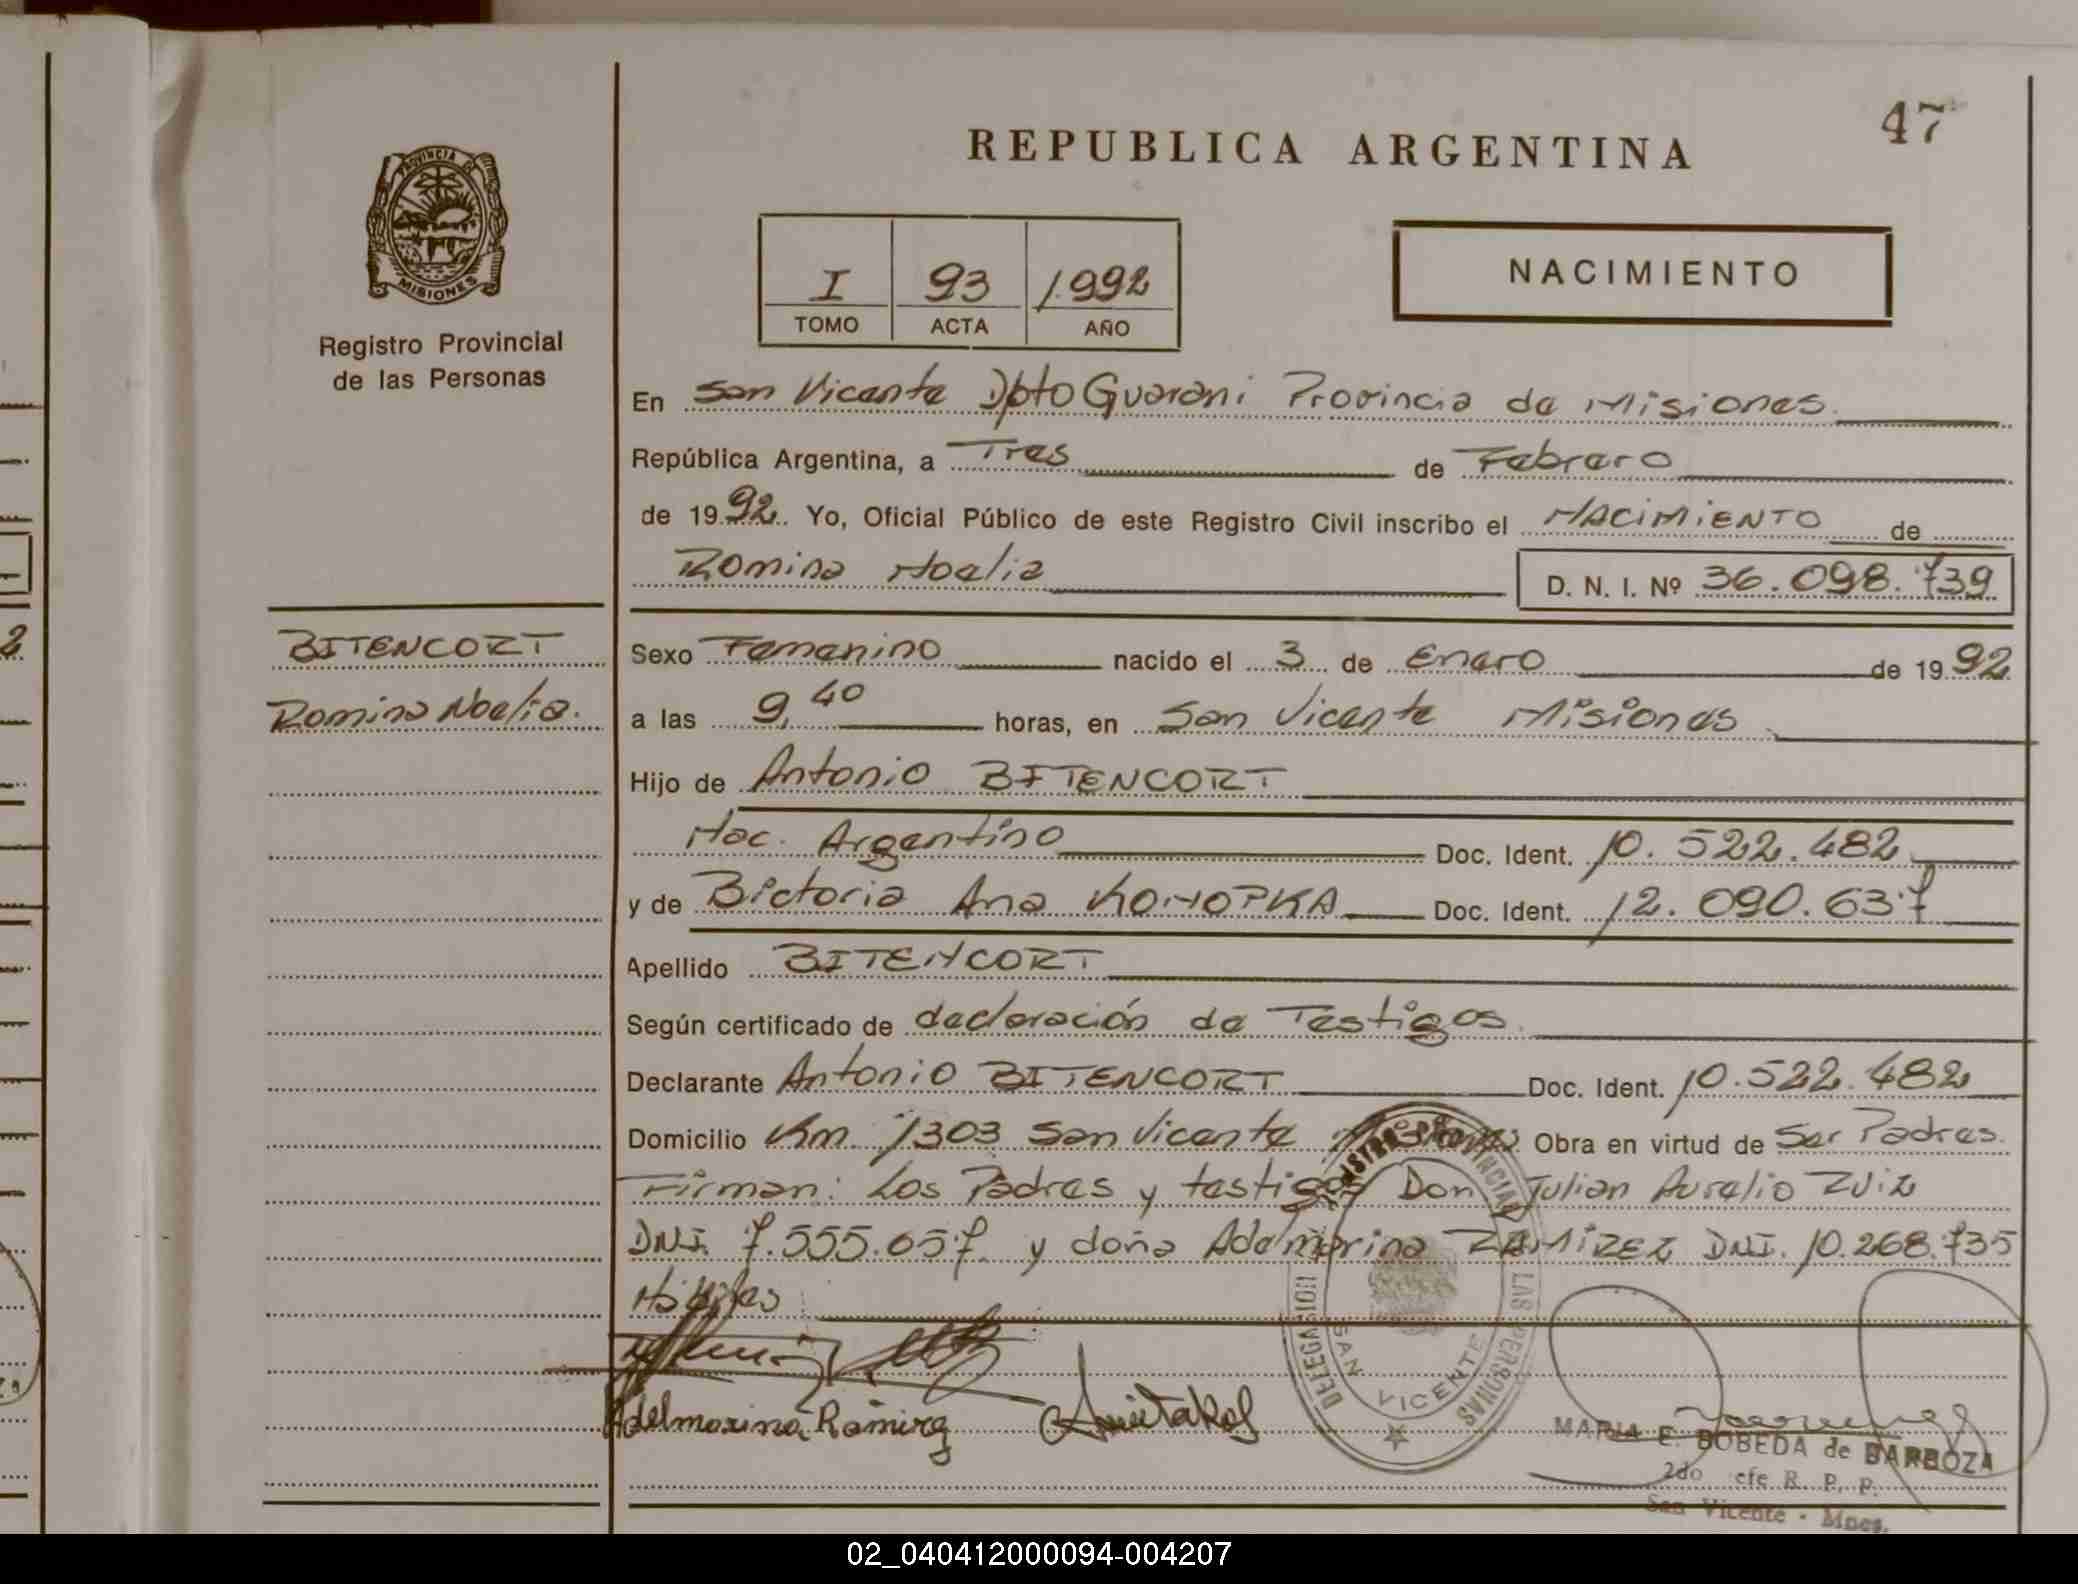 47
REPUBLICA ARGENTINA
PROVINCIA DE
MISIONES
Registro Provincial
de las Personas
I 93 1992
TOMO ACTA AÑO
NACIMIENTO
En San Vicente Dpto Guarani Provincia de Misiones.
República Argentina, a Tres de Febrero
de 1992. Yo, Oficial Público de este Registro Civil inscribo el NACIMIENTO de
Romina Noelia D. N. I. Nº 36.098.739
BITENCORT
Romina Noelia.
Sexo Femenino nacido el 3 de Enero de 1992
a las 9,40 horas, en San Vicente Misiones
Hijo de Antonio BITENCORT
Nac. Argentino Doc. Ident. 10.522.482
y de Bictoria Ana KONOPKA Doc. Ident. 12.090.637
Apellido BITENCORT
Según certificado de declaración de Testigos.
Declarante Antonio BITENCORT Doc. Ident. 10.522.482
Domicilio Km. 1303 San Vicente Misiones Obra en virtud de Ser Padres.
Firman: Los Padres y testigos Don Julian Aurelio Ruiz
DNI. 7.555.057 y doña Adelmarina RAMIREZ DNI. 10.268.735
Adelmarina Ramirez
DELEGASION
SAN VICENTE
LAS PERSONAS
MARIA E. BOBEDA de BARBOZA
2do efe R. P. P.
San Vicente - Mnes.
02_040412000094-004207